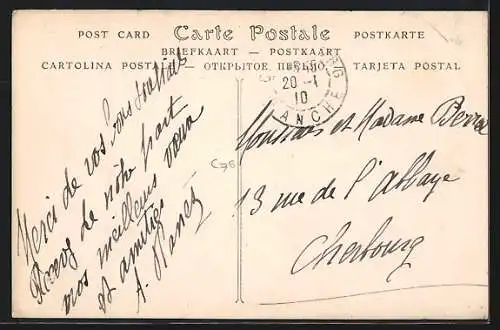 POST CARD Carte Postale POSTKARTE
BRIEFKAART — POSTKAART
CARTOLINA POSTAL ОТКРЫТОЕ TARJETA POSTAL
20 -1
10
MANCHE
Merci de vos bons souhaits
Recevez de notre part
nos meilleurs vœux
et amitiés
C76
et Madame
13 rue de l'abbaye
Cherbourg